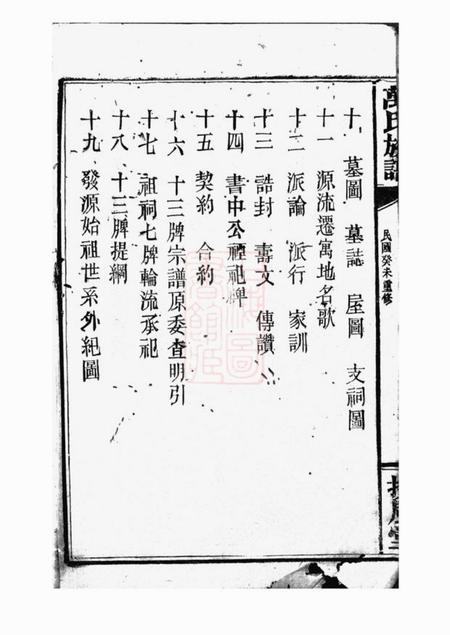 萬氏族譜
民國癸未重修
十 墓圖 墓誌 屋圖 支祠圖
十一 源流遷寓地名歌
十二 派論 派行 家訓
十三 誥封 壽文 傳讚
十四 書中公禋祀碑
十五 契約 合約
十六 十三牌宗譜原委查明引
十七 祖祠七牌輪流承祀
十八 十三牌提綱
十九 發源始祖世系外紀圖